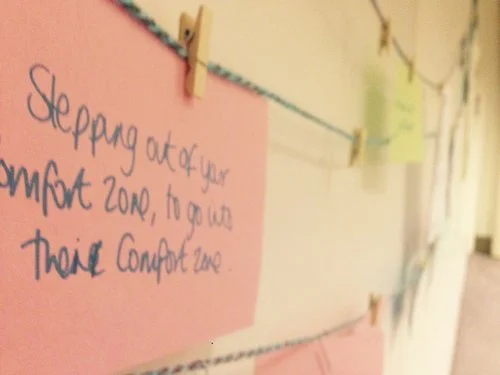 Stepping out of your
omfort zone, to go into
their Comfort zone.